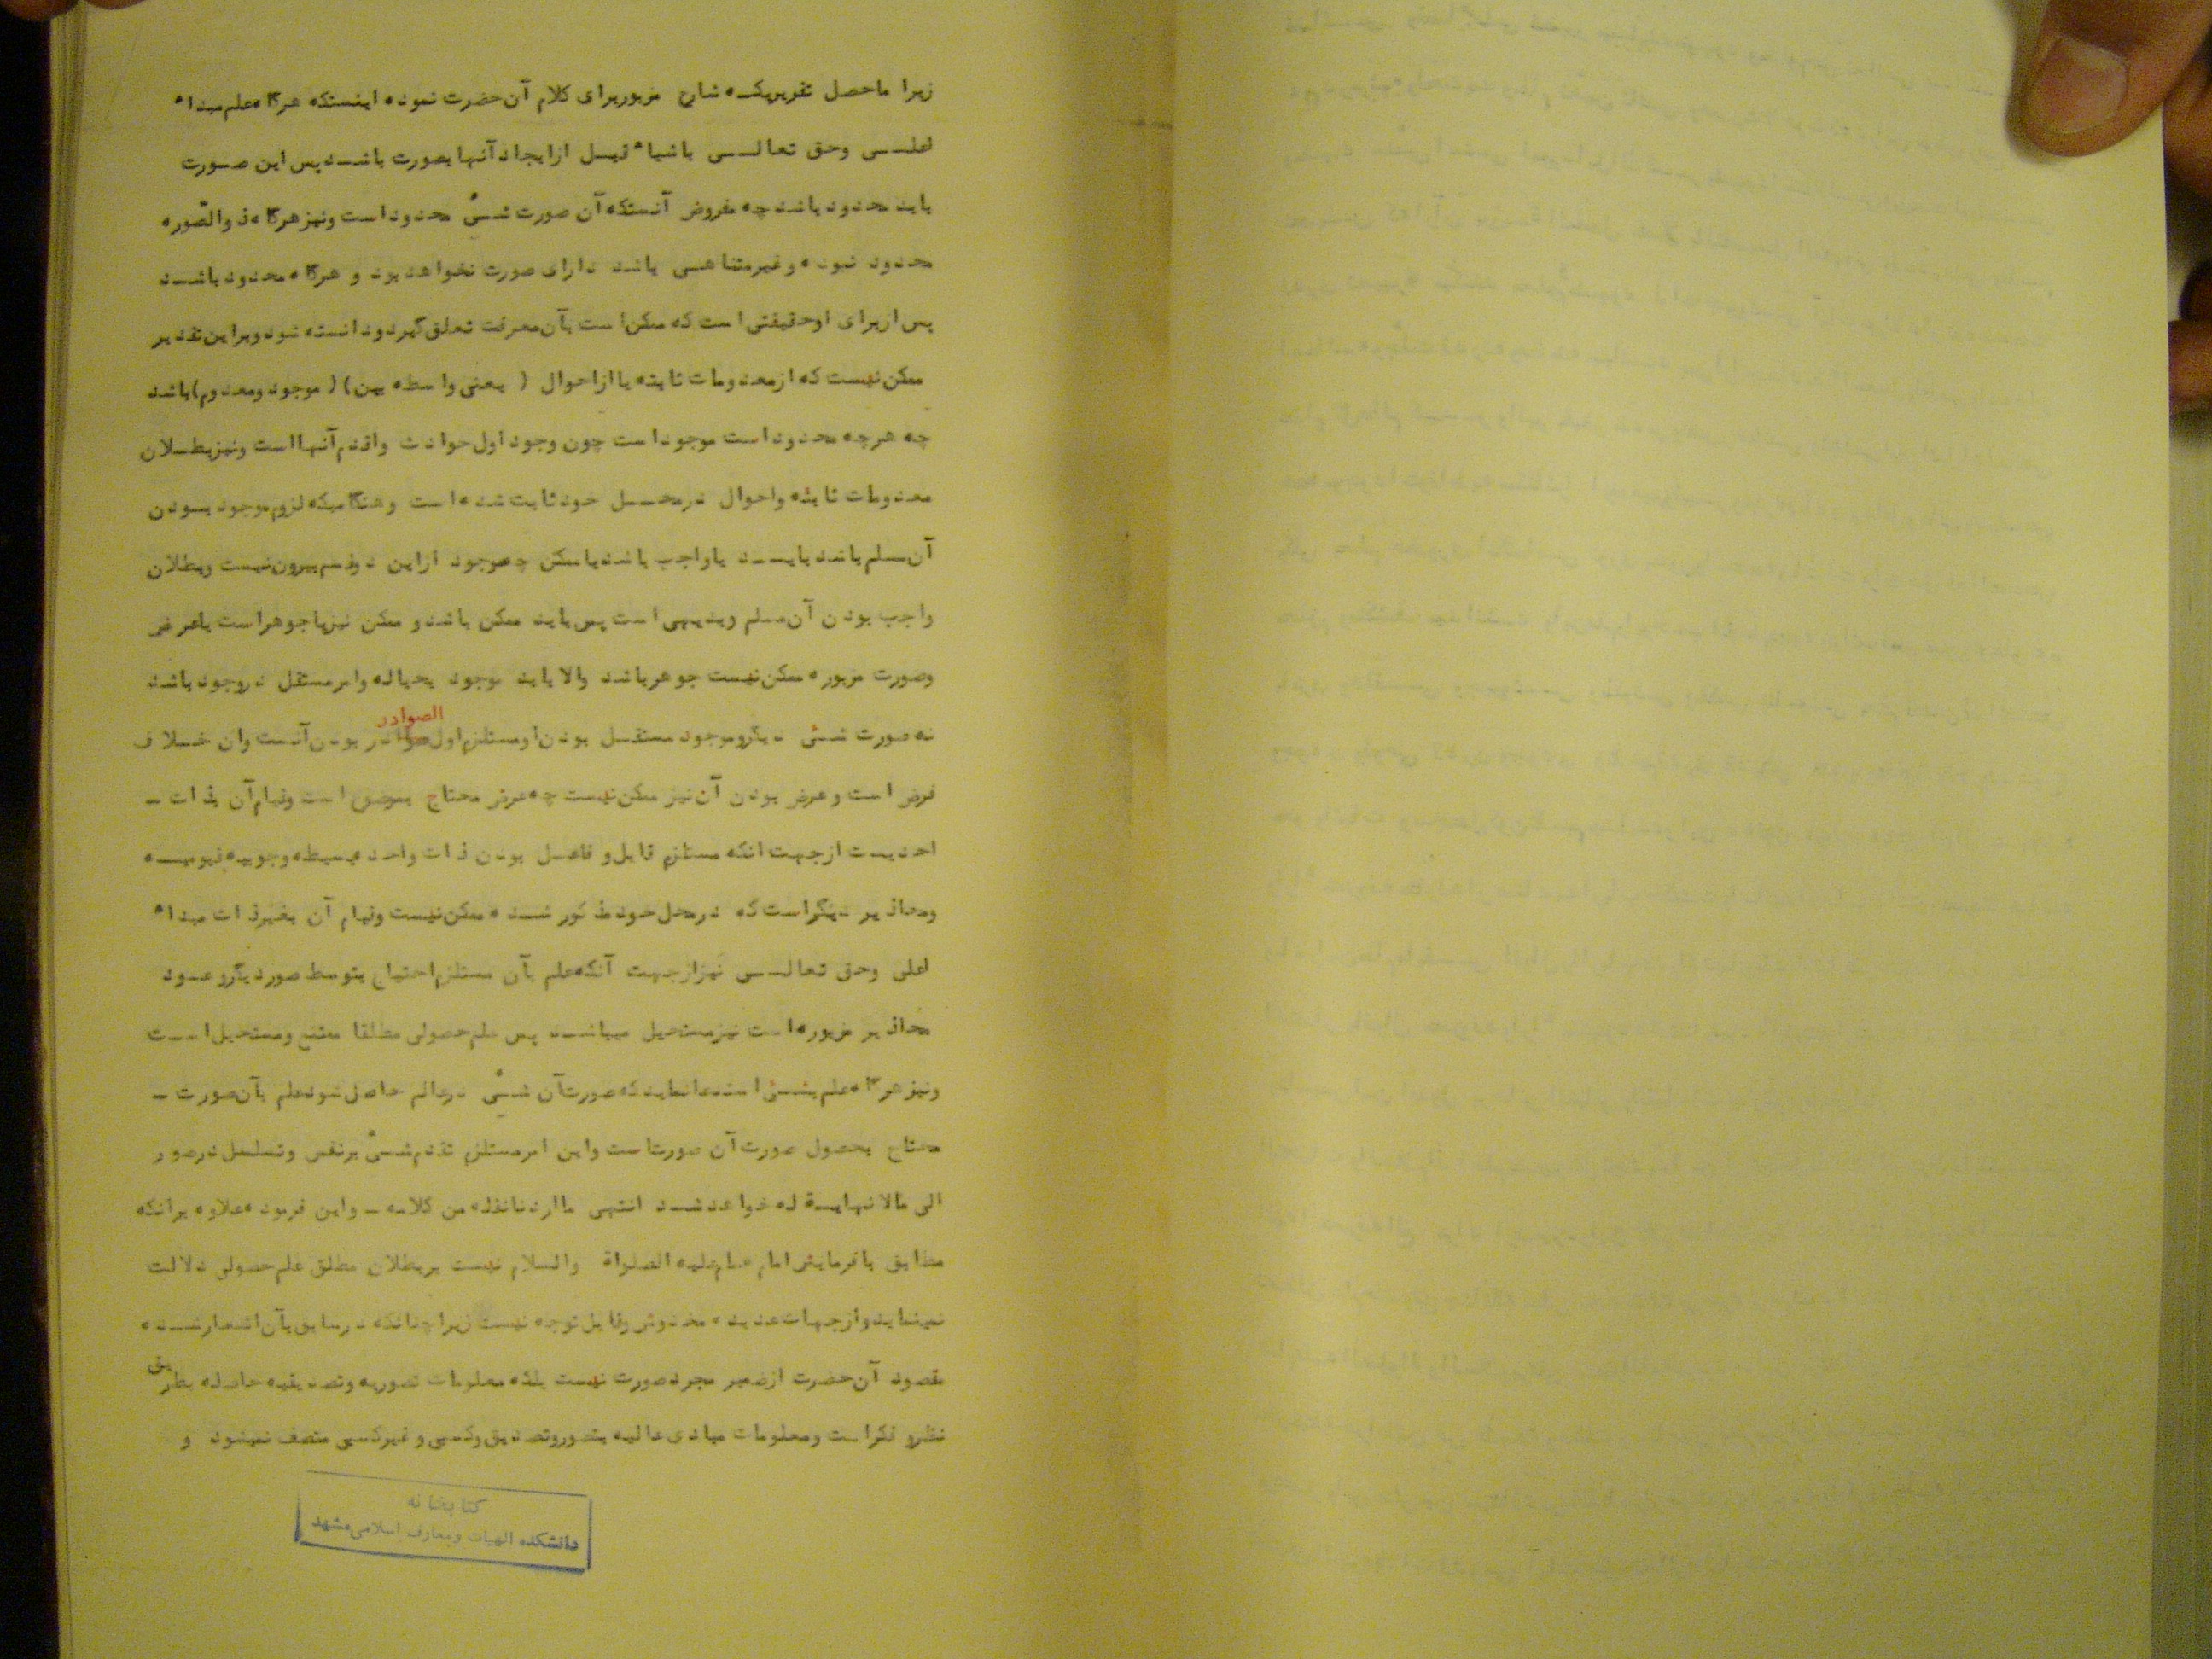 زیرا ماحصل تقریریکه شارح مزبور برای کلام آن حضرت نموده اینستکه هرگاه علم مبداء
اعلی وحق تعالی باشیاء قبل از ایجاد آنها بصورت باشد پس این صورت
باید محدود باشد چه مفروض آنستکه آن صورت شیئ محدود است ونیز هرگاه ذوالصّوره
محدود نبوده وغیرمتناهی باشد دارای صورت نخواهد بود و هرگاه محدود باشد
پس از برای اوحقیقتی است که ممکن است بآن معرفت تعلق گیرد ودانسته شود وبراین تقدیر
ممکن نیست که از معدومات ثابته یا از احوال ( یعنی واسطه بین) ( موجود ومعدوم) باشد
چه هرچه محدود است موجود است چون وجود اول حوادث واقدم آنها است ونیز بطلان
معدومات ثابته واحوال درمحل خود ثابت شده است وهنگامیکه لزوم موجود بودن
آن مسلم باشد باید یا واجب باشد یا ممکن چه موجود از این دوقسم بیرون نیست وبطلان
واجب بودن آن مسلم وبدیهی است پس باید ممکن باشد و ممکن نیز یا جوهر است یا عرض
وصورت مزبوره ممکن نیست جوهر باشد والا باید موجود بحیاله وامر مستقل دروجود باشد
الصوادر
نه صورت شیئ دیگر وموجود مستقل بودن او مستلزم اول صوادر بودن آنست وان خلاف
فرض است وعرض بودن آن نیز ممکن نیست چه عرض محتاج بموضوع است وقیام آن بذات -
احدیت از جهت انکه مستلزم قابل و فاعل بودن ذات واحده بسیطه وجوبیه قیومیه
ومحاذیر دیگر است که درمحل خود مذکور شده ممکن نیست وقیام آن بغیر ذات مبداء
اعلی وحق تعالی نیز از جهت آنکه علم بآن مستلزم احتیاج بتوسط صور دیگر وعود
محاذیر مزبوره است نیز مستحیل میباشد پس علم حصولی مطلقا ممتنع ومستحیل است
ونیز هرگاه علم بشیئ استدعا نماید که صورت آن شیئ درعالم حاصل شود علم بآن صورت -
محتاج بحصول صورت آن صورت است واین امر مستلزم تقدم شیئ برنفس وتسلسل درصور
الی مالا نهایة له خواهد شد انتهی ما اردنا نقله من کلامه - واین فرموده علاوه برانکه
مطابق با فرمایش امام همام علیه الصلواة والسلام نیست بربطلان مطلق علم حصولی دلالت
نمینماید واز جهات عدیده مخدوش وقابل توجه نیست زیرا چنانکه درسابق بآن اشعار شده
مقصود آن حضرت از ضمیر مجرد صورت نیست بلکه معلومات تصوریه وتصدیقیه حاصله بطریق
نظر و فکر است ومعلومات مبادی عالیه بتصور وتصدیق وکسبی و غیرکسبی متصف نمیشود و
کتابخانه
دانشکده الهیات ومعارف اسلامی مشهد